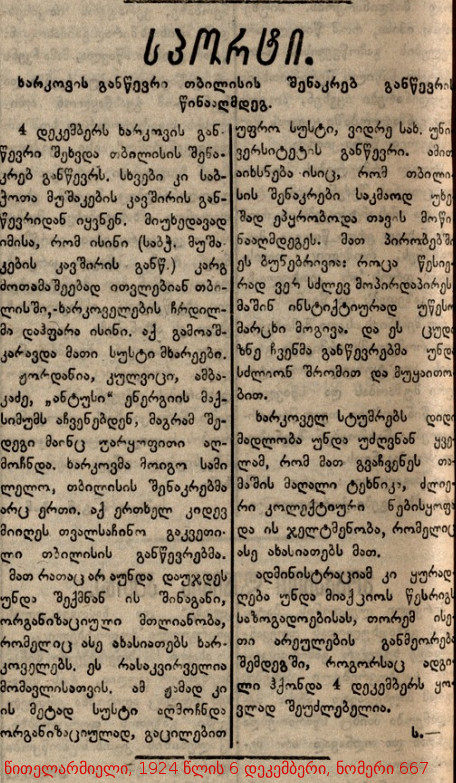 სპორტი.
ხარკოვის განწევრი თბილისის შენაკრებ განწევრის
წინააღმდეგ.
4 დეკემბერს ხარკოვის გან-
წევრი შეხვდა თბილისის შენა-
კრებ განწევრს. სხვები კი საბ-
ჭოთა მუშაკების კავშირის გან-
წევრიდან იყვნენ. მიუხედავად
იმისა, რომ ისინი (საბჭ. მუშა-
კების კავშირის განწ.) კარგ
მოთამაშეებად ითვლებიან თბი-
ლისში,-ხარკოველების ჩრდილ-
მა დაჰფარა ისინი. აქ გამოაშ-
კარავდა მათი სუსტი მხარეები.
ჟორდანია, კულვიცი, ამბა-
კაძე, „ანტუსი“ ენერგიის მაქ-
სიმუმს აჩვენებდენ, მაგრამ შე-
დეგი მაინც უარყოფითი აღ-
მოჩნდა. ხარკოვმა მოიგო სამი
ლელო, თბილისის შენაკრებმა
არც ერთი. აქ ერთხელ კიდევ
მიიღეს თვალსაჩინო გაკვეთი-
ლი თბილისის განწევრებმა.
მათ რათაც არ აუნდა დაუჯდეს
უნდა შექმნან ის შინაგანი,
ორგანიზაციული მთლიანობა,
რომელიც ასე ახასიათებს ხარ-
კოველებს. ეს რასაკვირველია
მომავლისათვის. ამ ჟამად კი
ის მეტად სუსტი აღმოჩნდა
ორგანიზაციულად, გაცილებით
უფრო სუსტი, ვიდრე სახ. უნი-
ვერსიტეტის განწევრი. ამით
აიხსნება ისიც, რომ თბილი-
სის შენაკრები საკმაოდ უხე-
შად ეპყრობოდა თავის მოწი-
ნააღმდეგეს. მათ პირობებში
ეს ბუნებრივია: როცა წესიე-
რად ვერ სძლევ მოპირდაპირეს
მაშინ ინსტიქტიურად უწესო
მარცხი მოგივა. და ეს ცუდ
ზნე ჩვენმა განწევრებმა უნდა
სძლიონ შრომით და მუყაითო-
ბით.
ხარკოველ სტუმრებს დიდი
მადლობა უნდა უძღვნან ყვე-
ლამ, რომ მათ გვაჩვენეს თა-
მაშის მაღალი ტეხნიკა, ძლიე-
რი კოლექტიური ნებისყოფა
და ის ჯელტმენობა, რომელიც
ასე ახასიათებს მათ.
ადმინისტრაციამ კი ყურად-
ღება უნდა მიაქციოს წესრიგს
საზოგადოებისას, თორემ ისე-
თი არეულების განმეორება
შემდეგში, როგორსაც ადგი-
ლი ჰქონდა 4 დეკემბერს ყო-
ვლად შეუძლებელია.
ს.—
წითელარმიელი, 1924 წლის 6 დეკემბერი, ნომერი 667